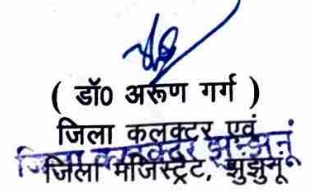 ( डॉ0 अरूण गर्ग )
जिला कलक्टर एवं
जिला कलक्टर झुन्झुनूं
जिला मजिस्ट्रेट, झुंझुनू